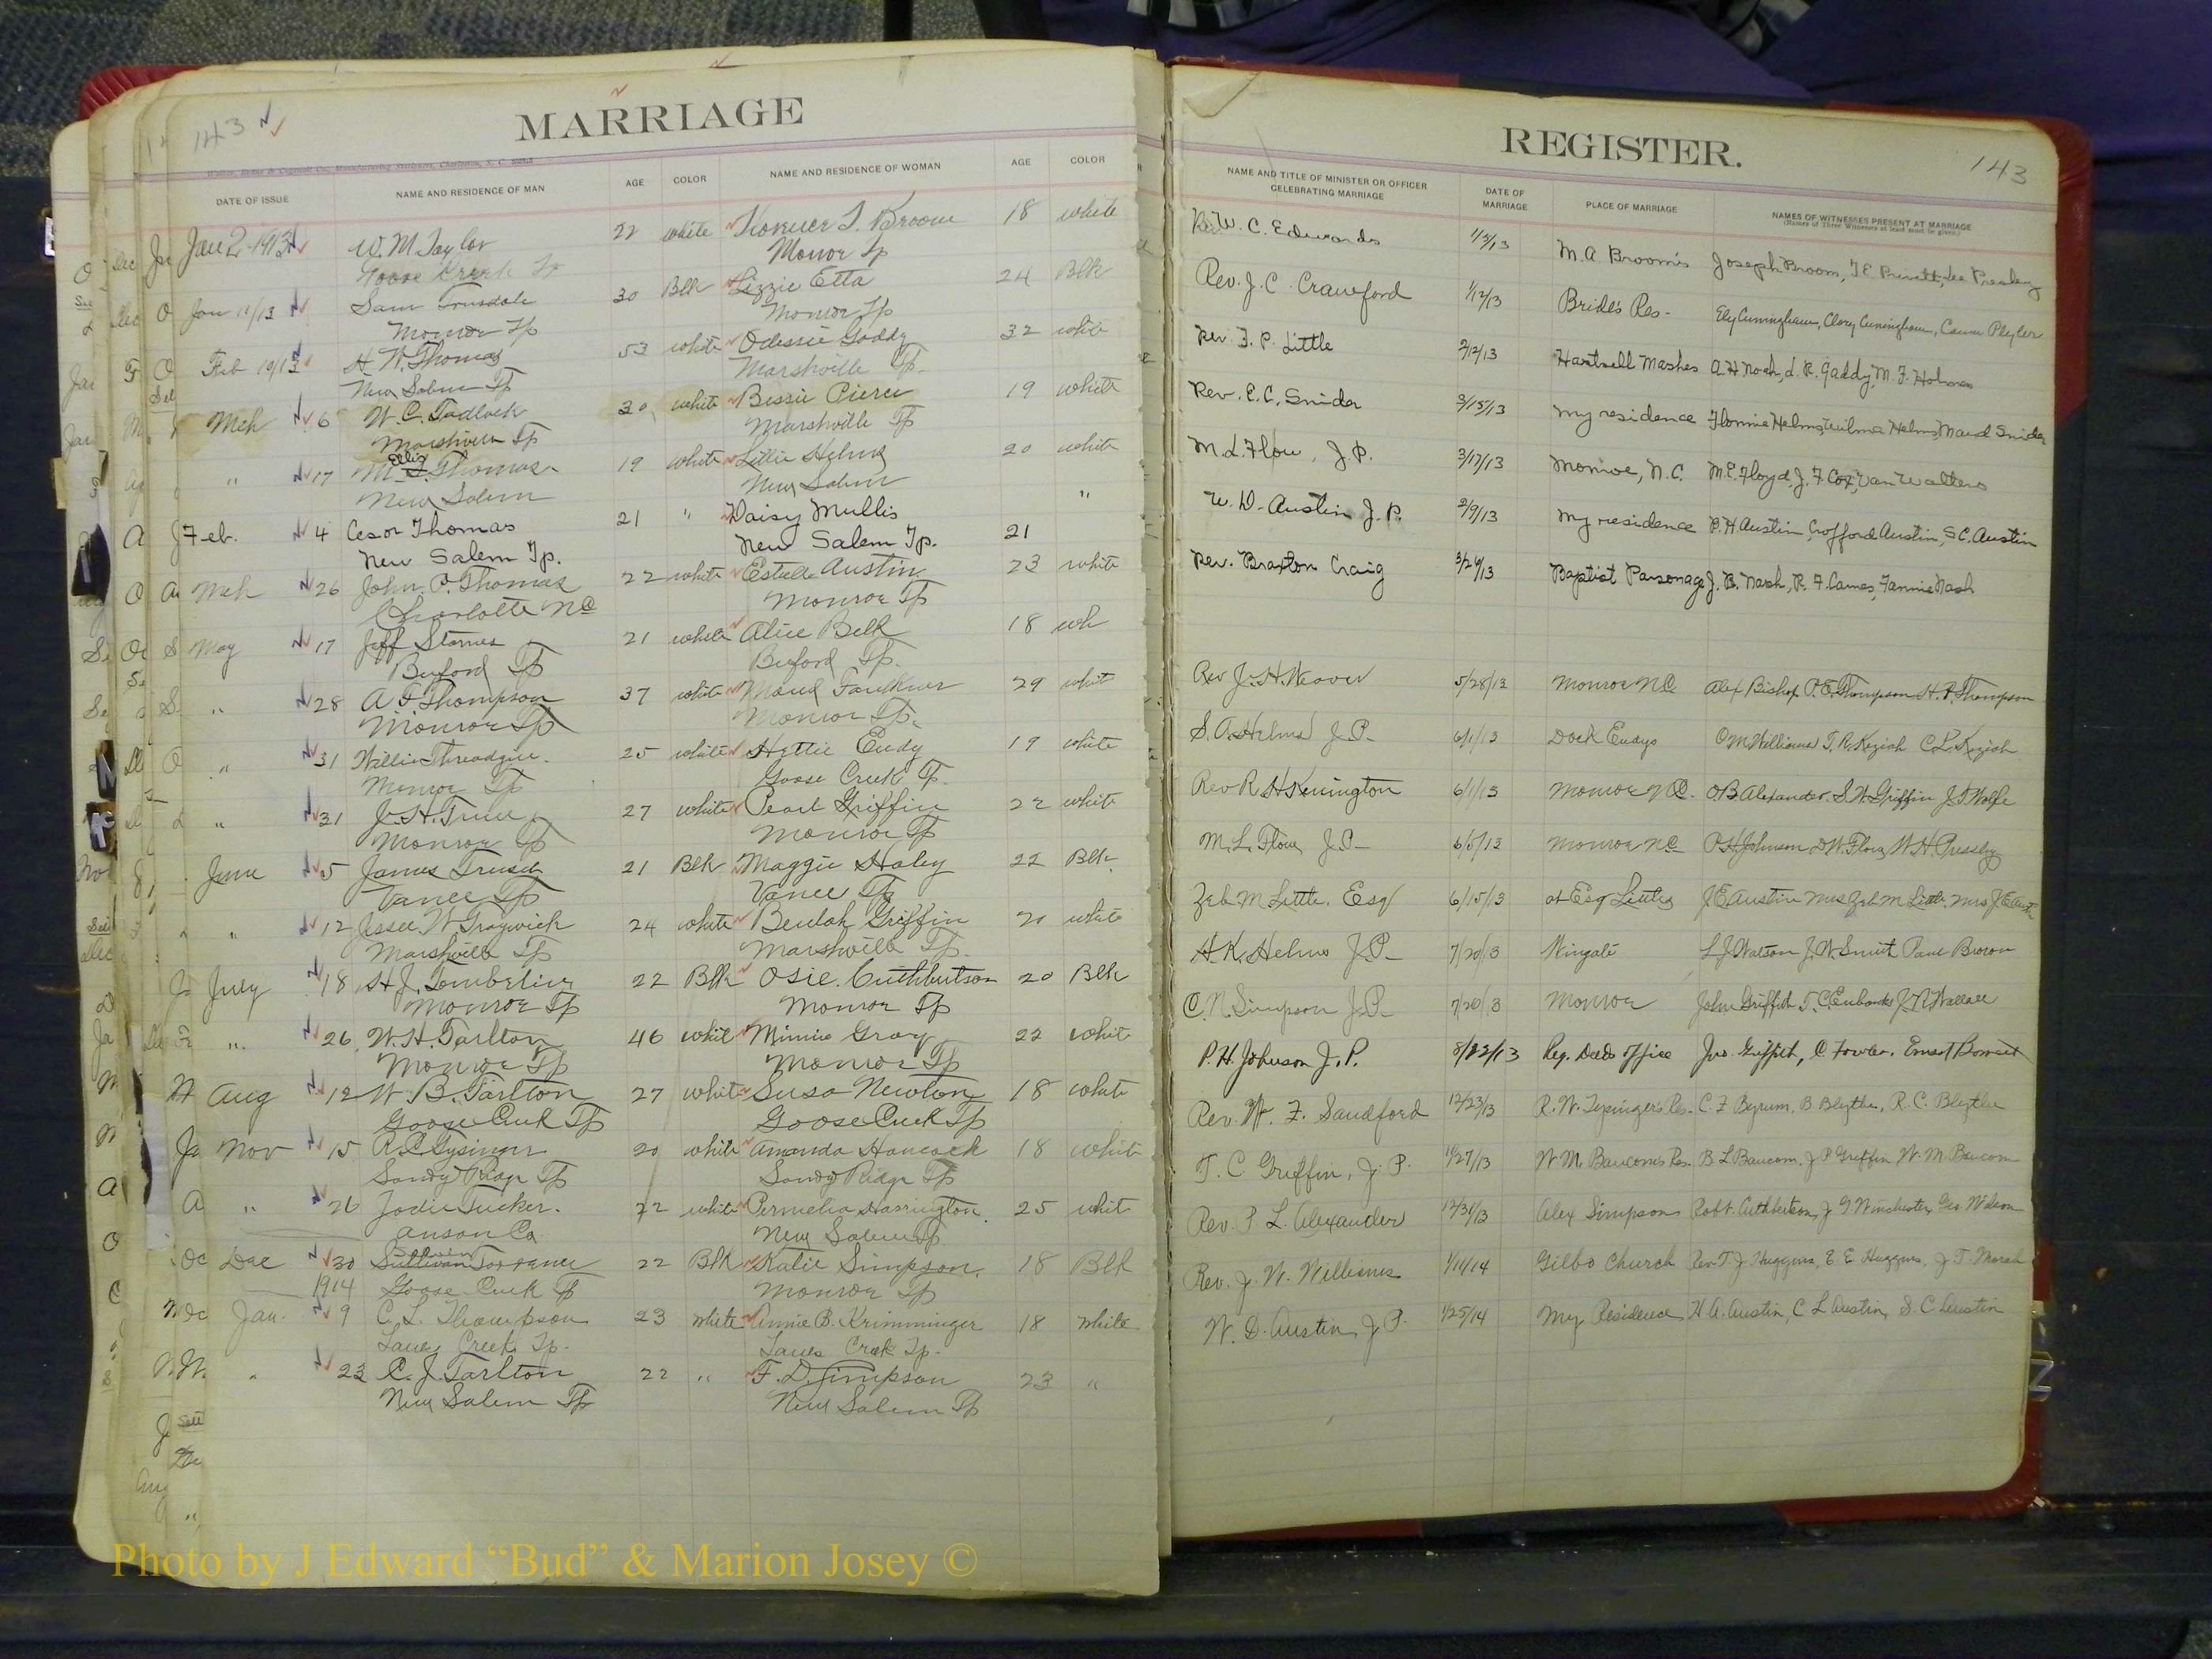 143
MARRIAGE
DATE OF ISSUE NAME AND RESIDENCE OF MAN AGE COLOR NAME AND RESIDENCE OF WOMAN AGE COLOR
Jan 2 1913 W. M. Taylor 22 white T. Broom 18 white
Goose Creek Tp Monroe Tp
Jan 11/13 Sam Truesdale 30 Blk Lizzie Etta 24 Blk
Monroe Tp Monroe Tp
Feb 10/13 H. W. Thomas 53 white Odessie Gaddy 32 white
New Salem Tp Marshville Tp
Mch 6 W. C. Tadlock 20 white Bessie Pierce 19 white
Marshville Tp Marshville Tp
" 17 Ellis Thomas 19 white Lillie Helms 20 white
New Salem New Salem
Feb. 4 Cesor Thomas 21 " Daisy Mullis 21 "
New Salem Tp. New Salem Tp.
Mch 26 John P. Thomas 22 white Estelle Austin 23 white
Charlotte NC Monroe Tp
May 17 Jeff Starnes 21 white Alice Belk 18 wh
Buford Tp Buford Tp.
" 28 A. F. Thompson 37 white Maud Faulkner 29 whit
Monroe Tp Monroe Tp.
" 31 Willie Threadgill 25 white Hettie Eudy 19 white
Monroe Tp Goose Creek Tp.
" 31 J. H. 27 white Pearl Griffin 22 white
Monroe Tp Monroe Tp
June 5 James 21 Blk Maggie Haley 22 Blk
Vance Tp Vance Tp
" 12 Jesse W. Traywick 24 white Beulah Griffin 20 white
Marshville Tp Marshville Tp.
July 18 H. J. Tomberlin 22 Blk Osie Cuthbertson 20 Blk
Monroe Tp Monroe Tp
" 26 W. H. Tarlton 46 whit Minnie Gray 22 whit
Monroe Tp Monroe Tp
Aug 12 W. B. Tarlton 27 white Susa Newton 18 white
Goose Creek Tp Goose Creek Tp
Nov 15 R. C. Tysinger 20 white Amanda Hancock 18 white
Sandy Ridge Tp Sandy Ridge Tp
" 26 Jodie Tucker. 22 white Permelia Harrington 25 whit
Anson Co New Salem Tp
Dec 30 Sullivan Torrance 22 Blk Katie Simpson. 18 Blk
1914 Goose Creek Tp Monroe Tp
Jan. 9 C. L. Thompson 23 white Annie B. Krimminger 18 white
Lanes Creek Tp. Lanes Creek Tp.
" 23 C. J. Tarlton 22 " F. D. Simpson 23 "
New Salem Tp New Salem Tp
REGISTER.
143
NAME AND TITLE OF MINISTER OR OFFICER CELEBRATING MARRIAGE DATE OF MARRIAGE PLACE OF MARRIAGE NAMES OF WITNESSES PRESENT AT MARRIAGE
(Names of Three Witnesses at least must be given.)
W. C. Edwards M. A. Broom's Joseph Broom, T. E. Lee Presley
Rev. J. C. Crawford 1/12/13 Bride's Res- Ely Cuningham, Clary Cuningham, Plyler
Rev. J. P. Little 2/12/13 Hartsell Mashes A. H. Nash, L. R. Gaddy, M. F. Holmes
Rev. E. C. Snider 3/15/13 My residence Flonnie Helms, Wilma Helms, Maud Snider
M. L. Flow, J.P. 3/17/13 Monroe, N.C. M. E. Floyd, J. F. Cox, Van Walters
W. D. Austin J.P. 2/9/13 My residence B. H. Austin, Crofford Austin, S C. Austin
Rev. Braxton Craig 3/26/13 Baptist Parsonage J. B. Nash, R. F. Fannie Nash
Rev J. H. Weaver 5/28/13 Monroe NC Alex Bishop P. E. Thompson H. P. Thompson
S. A. Helms J.P. 6/1/13 Dock Eudys O M Williams T. R. Keziah C. L. Keziah
Rev R. H Kennington 6/1/13 Monroe NC. O B Alexander. S. W. Griffin J. F. Wolfe
M. L. Flow J.P- 6/5/13 Monroe NC P. H. Johnson D W. Flow, W H. Pressly
Zeb M. Little. Esq 6/15/13 at Esq Littles J E Austin Mrs Zeb M Little. Mrs J E Austin
H. K. Helms J.P- 7/20/13 Wingate L J Watson J. W. Smith Paul Brown
C. N. Simpson J.P- 7/20/13 Monroe John Griffith T. C. Eubanks J. N. Wallace
P. H. Johnson J. P. 8/12/13 Reg. Deeds office Jno. Griffith, C. Fowler. Ernest
Rev. W. F. Sandford 12/23/13 R. W. Tysinger's Res- C. F. Byrum, B. Blythe, R. C. Blythe
T. C Griffin, J. P. 11/27/13 W M. Baucom's Res. B. L Baucom. J P Griffin W. M. Baucom
Rev. P. L. Alexander 12/31/13 Alex Simpsons Robt. Cuthbertson, J G Winchester, Geo Wilson
Rev. J. W. Williams 1/11/14 Gilbo Church Rev. T. J. Huggins, E. E Huggins, J T. Marsh
W. D. Austin, J. P. 1/25/14 My Residence H. A. Austin, C L Austin, S. C Austin
Photo by J Edward “Bud” & Marion Josey ©